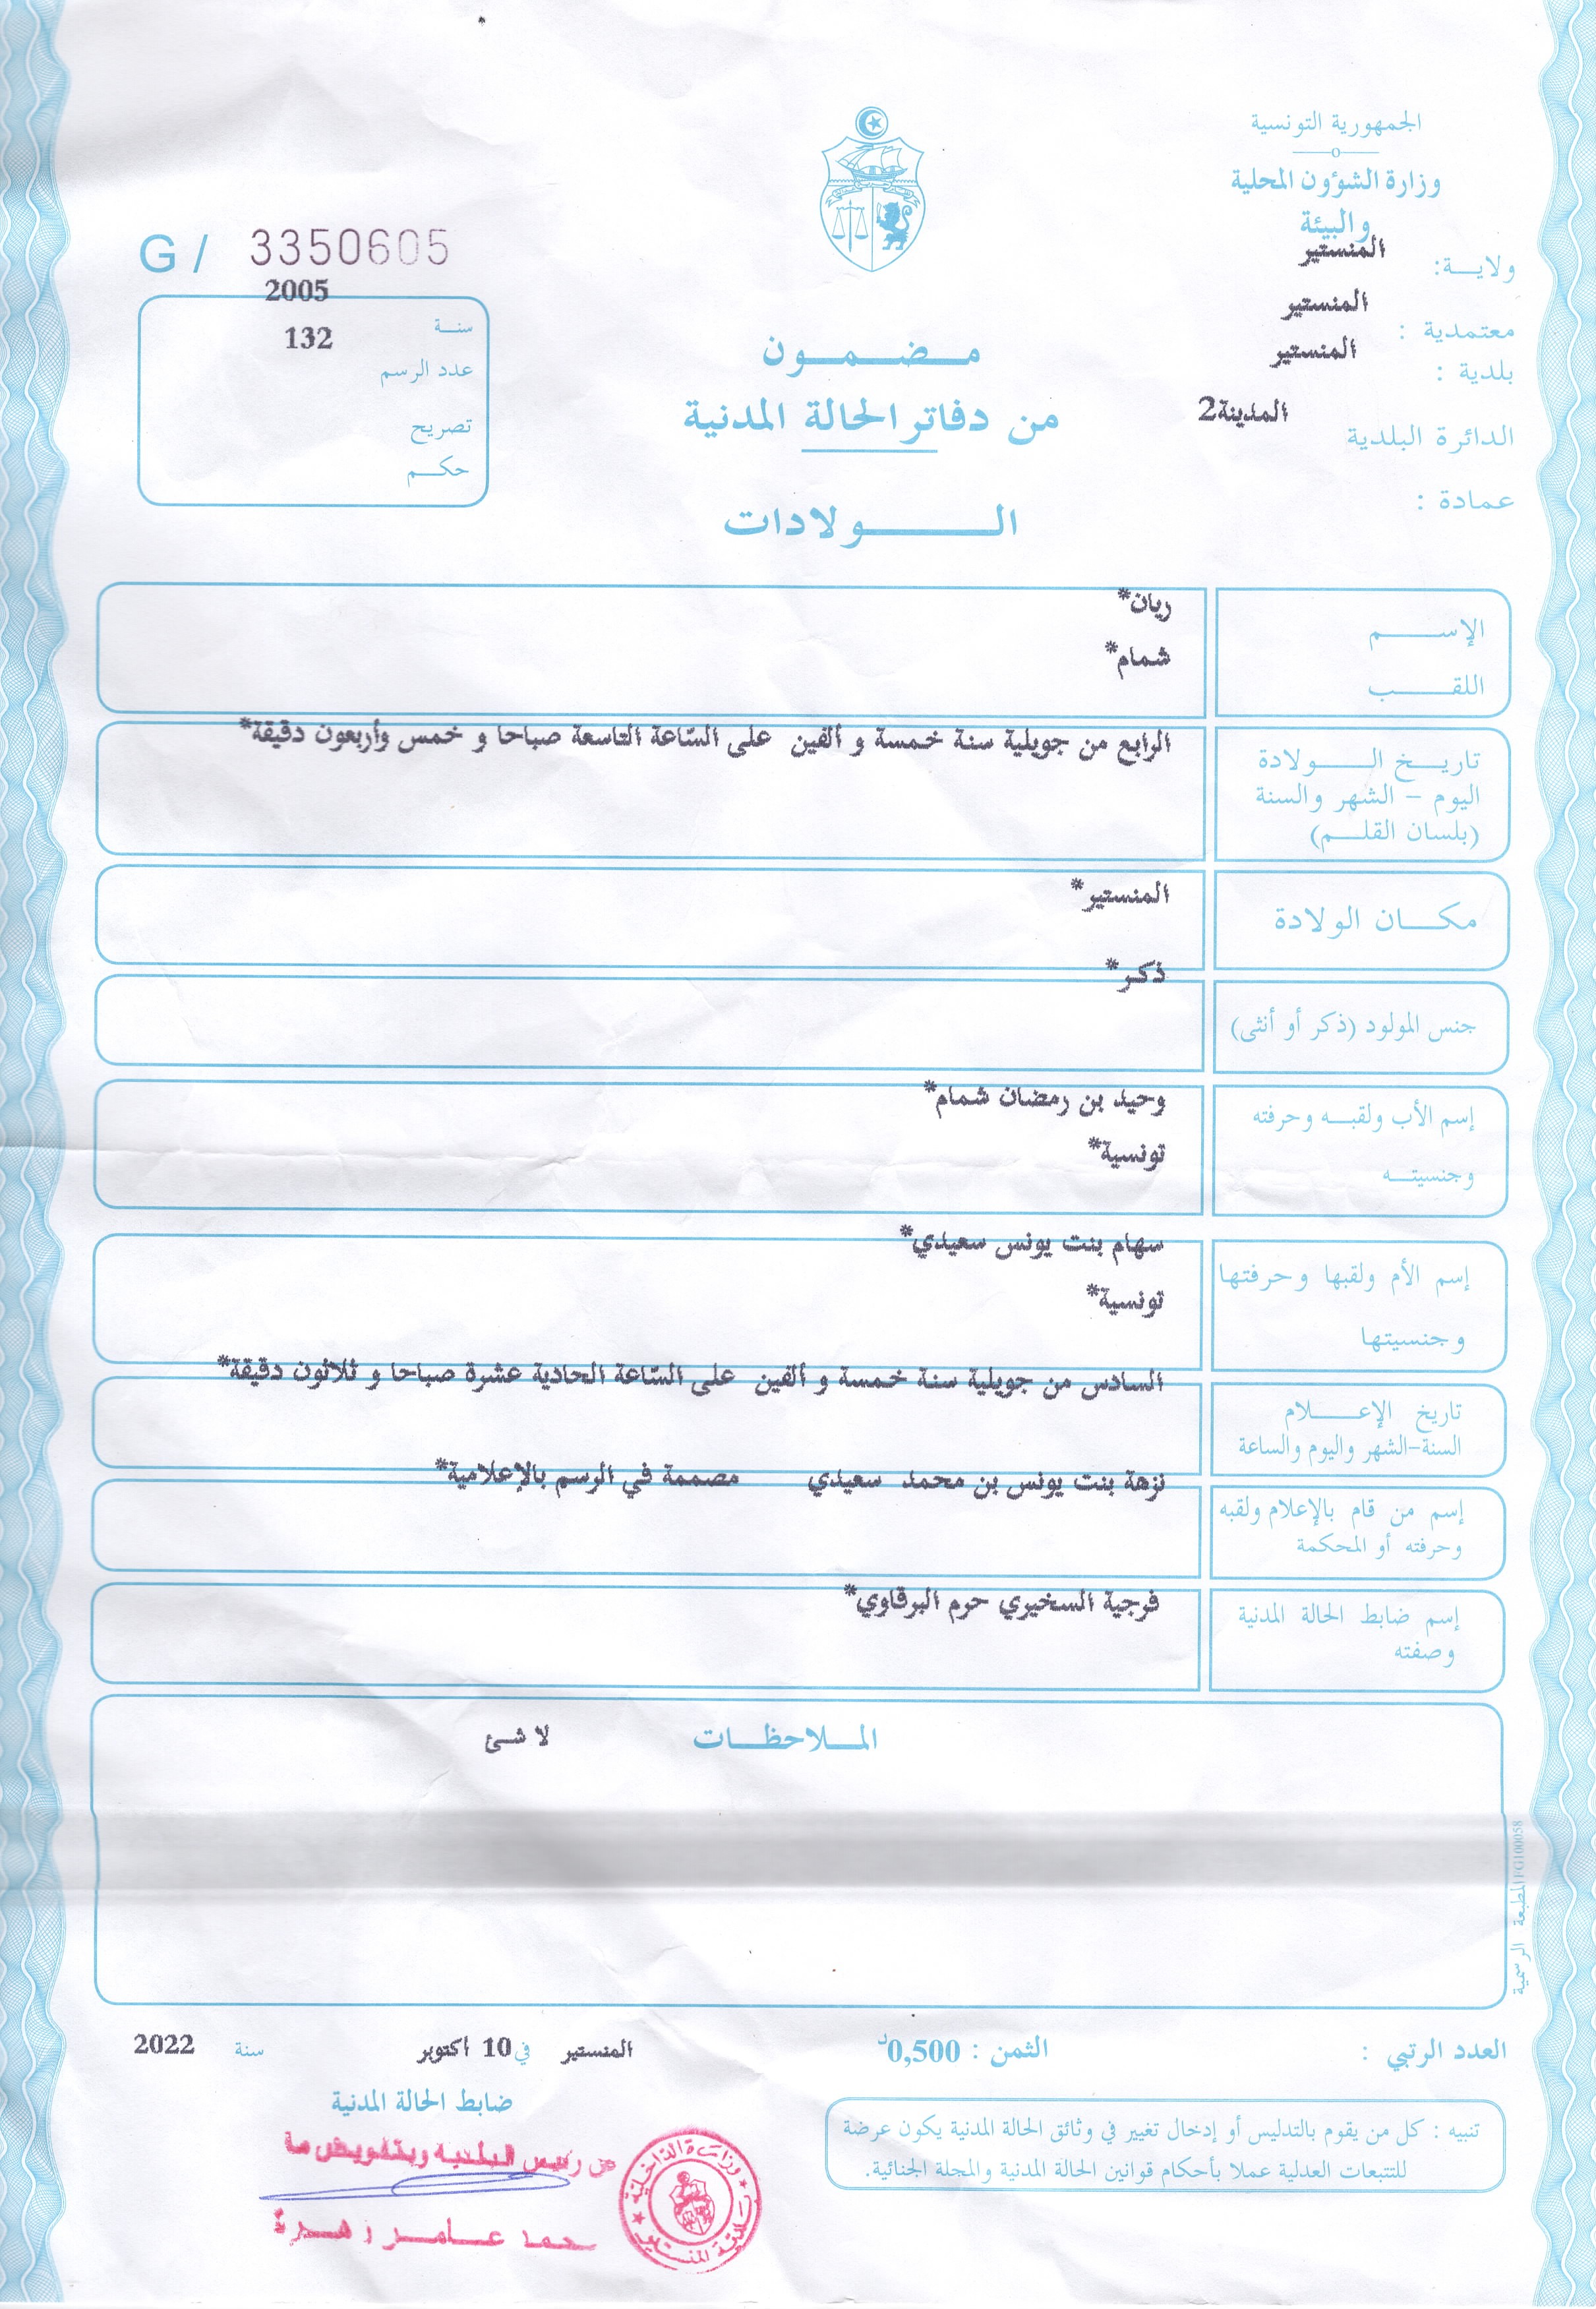 الجمهورية التونسية
وزارة الشؤون المحلية
والبيئة
ولايـــة: المنستير
معتمدية : المنستير
بلدية : المنستير
الدائرة البلدية المدينة2
عمادة :
G / 3350605
سنـة 2005
عدد الرسم 132
تصريح
حكـــم
مـضـمـون
من دفاتر الحالة المدنية
الـــولادات
الإســـم ريان*
اللقـــب شمام*
تاريــخ الـــولادة
اليوم – الشهر والسنة
(بلسان القلـــم)
الرابع من جويلية سنة خمسة و ألفين على السّاعة التاسعة صباحا و خمس وأربعون دقيقة*
مكـــان الولادة المنستير*
جنس المولود (ذكر أو أنثى) ذكر*
إسم الأب ولقبـــه وحرفته وحيد بن رمضان شمام*
وجنسيتـــه تونسية*
إسم الأم ولقبها وحرفتها سهام بنت يونس سعيدي*
وجنسيتها تونسية*
تاريخ الإعـــلام
السنة-الشهر واليوم والساعة
السادس من جويلية سنة خمسة و ألفين على السّاعة الحادية عشرة صباحا و ثلاثون دقيقة*
إسم من قام بالإعلام ولقبه
وحرفته أو المحكمة
نزهة بنت يونس بن محمد سعيدي مصممة في الرسم بالإعلامية*
إسم ضابط الحالة المدنية
وصفته
فرجية السخيري حرم البرقاوي*
المــلاحظــات لا شئ
المطبعة الرسمية FG100058
العدد الرتبي :
الثمن : 0,500د
المنستير في 10 اكتوبر سنة 2022
ضابط الحالة المدنية
عن رئيس البلدية وبتفويض ما
حمد عـامـر زهـرة
وزارة الداخلية
بلدية المنستير
تنبيه : كل من يقوم بالتدليس أو إدخال تغيير في وثائق الحالة المدنية يكون عرضة
للتتبعات العدلية عملا بأحكام قوانين الحالة المدنية والمجلة الجنائية.